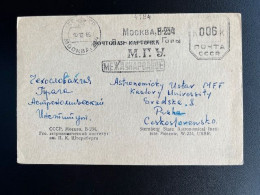 1784
МОСКВА, В-234
006 К
ПОЧТА
СССР
ПОЧТОВАЯ КАРТОЧКА
М.Г.У.
МЕЖДУНАРОДНОЕ
Чехословакия
Прага
Астрономический
Институт.
Astronomický Ústav MFF
Karlovy University
Švédská 8
Praha
Československo
СССР, Москва, В-234,
Гос. астрономический институт
им. П. К. Штернберга
Sternberg State Astronomical Institute,
Moscow, W-234, USSR